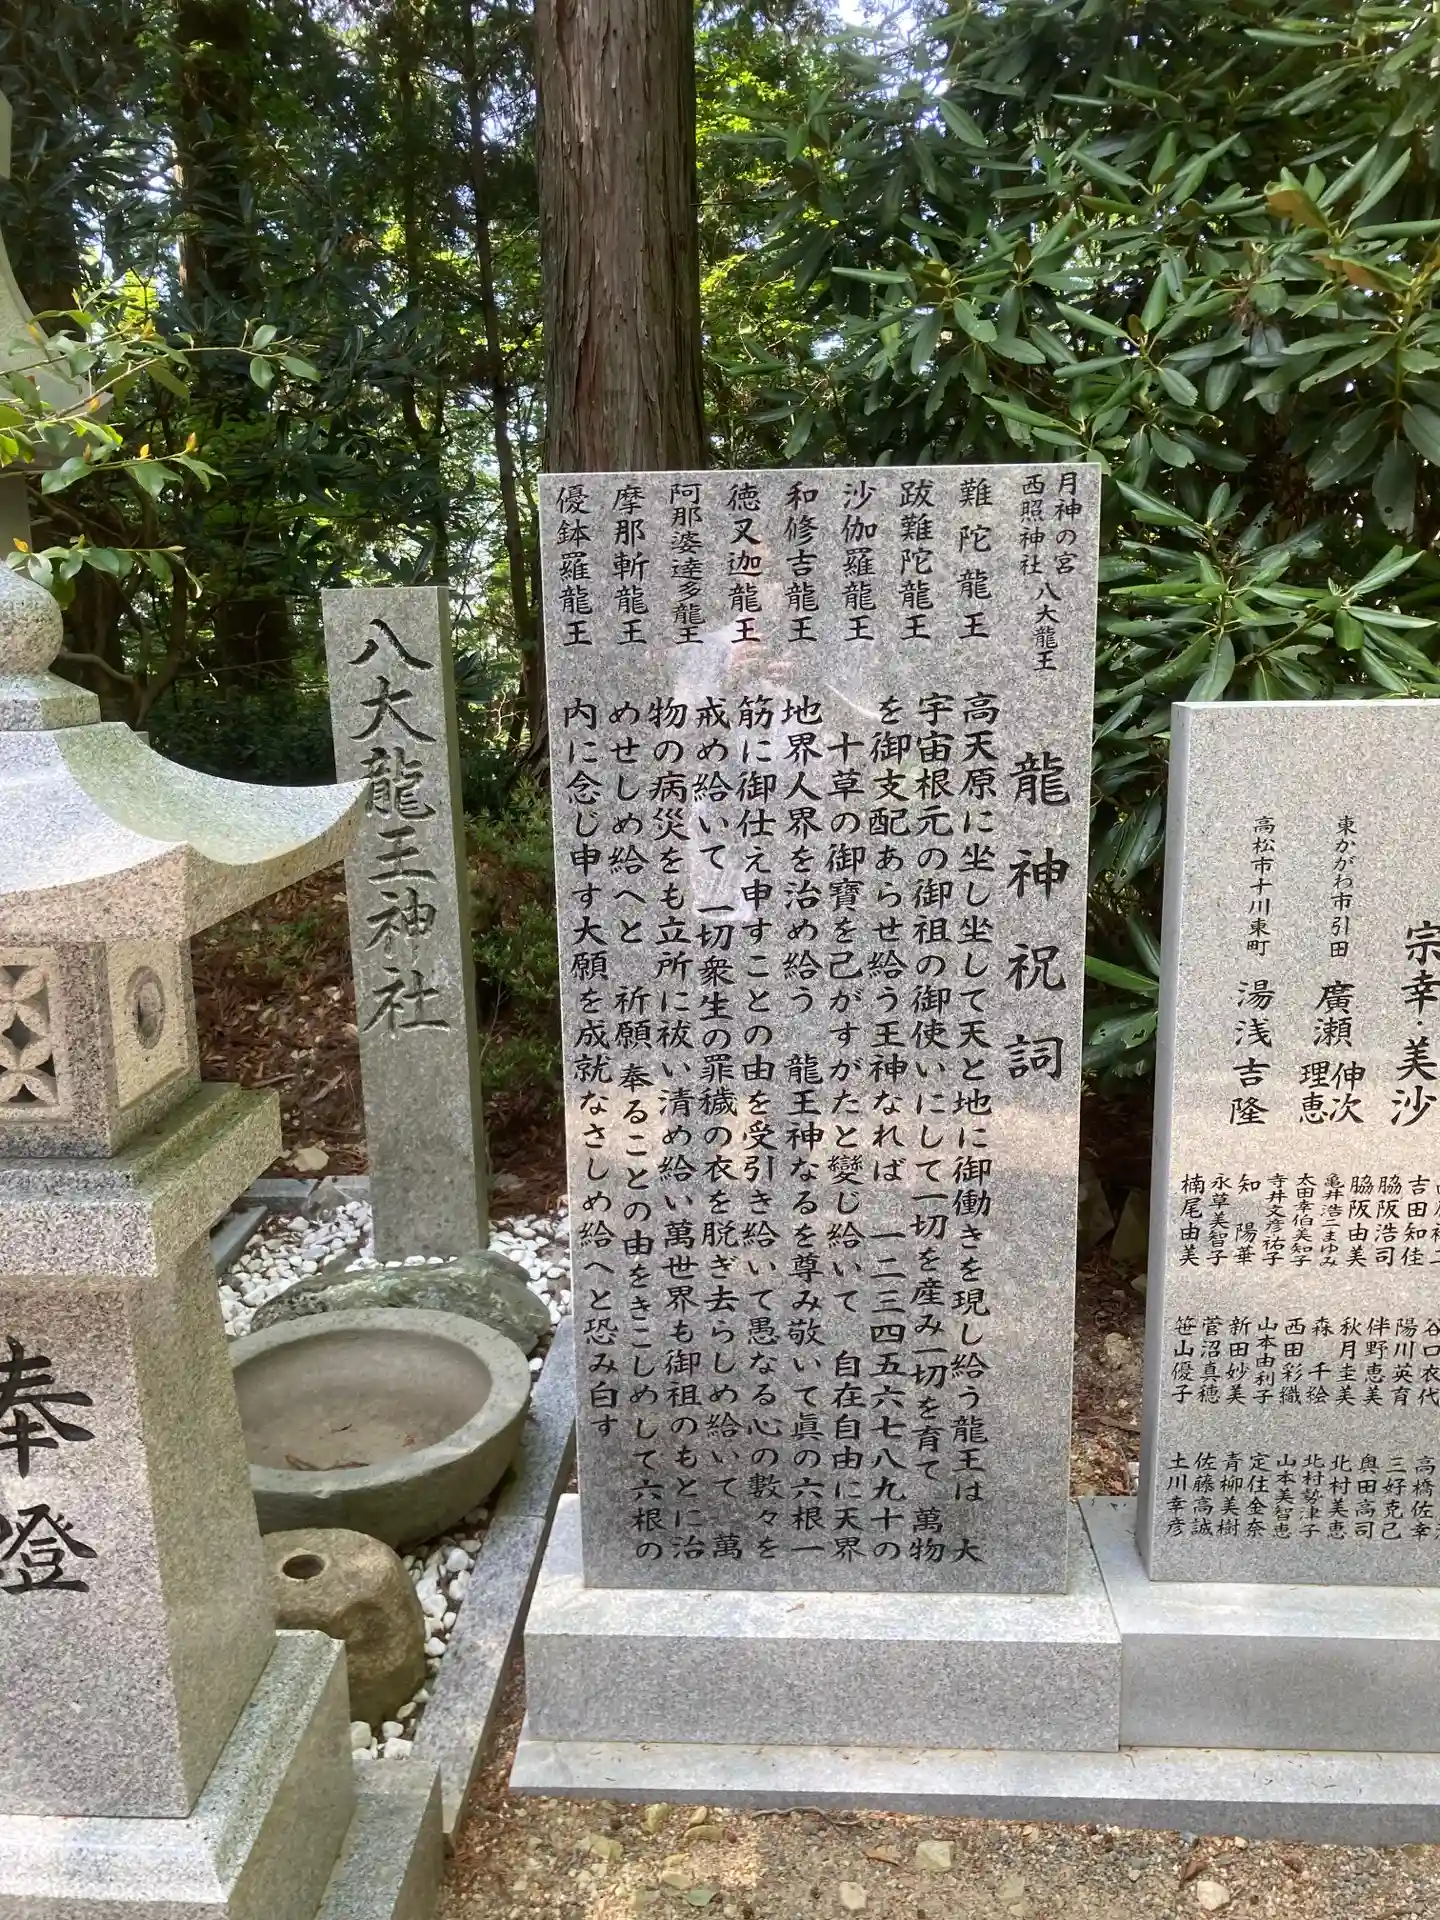 月神の宮
西照神社
八大龍王
龍神祝詞
難陀龍王
跋難陀龍王
沙伽羅龍王
和修吉龍王
徳叉迦龍王
阿那婆達多龍王
摩那斬龍王
優鉢羅龍王
高天原に坐し坐して天と地に御働きを現し給う龍王は 大
宇宙根元の御祖の御使いにして一切を産み一切を育て 萬物
を御支配あらせ給う王神なれば 一二三四五六七八九十の
十草の御寶を己がすがたと變じ給いて 自在自由に天界
地界人界を治め給う 龍王神なるを尊み敬いて眞の六根一
筋に御仕え申すことの由を受引き給いて愚なる心の數々を
戒め給いて 一切衆生の罪穢の衣を脱ぎ去らしめ給いて 萬
物の病災をも立所に祓い清め給い萬世界も御祖のもとに治
めせしめ給へと 祈願奉ることの由をきこしめして六根の
内に念じ申す大願を成就なさしめ給へと恐み白す
八大龍王神社
奉燈
宗幸・美沙
東かがわ市引田 廣瀬 伸次
理恵
高松市十川東町 湯浅吉隆
吉田知佳
脇阪浩司
脇阪由美
亀井浩二まゆみ
太田幸伯美知子
寺井文彦祐子
知 陽華
永草美智子
楠尾由美
谷口衣代
陽川英育
伴野恵美
秋月圭美
森 千絵
西田彩織
山本由利子
新田妙美
菅沼真穂
笹山優子
高橋佐幸
三好克己
奥田高司
北村美恵
北村勢津子
山本美智恵
定住金奈
青柳美樹
佐藤高誠
土川幸彦